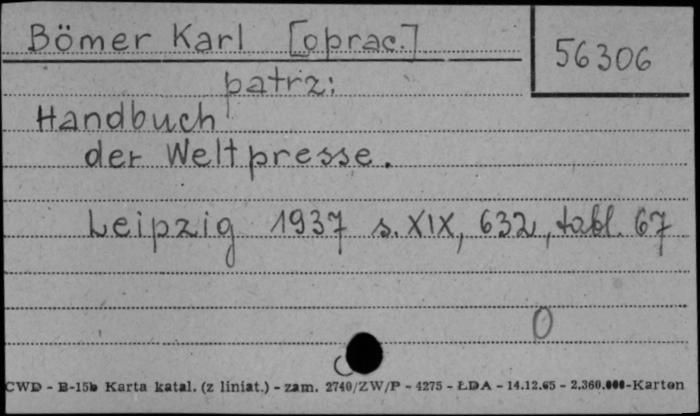 Bömer Karl [oprac.]
56306
patrz:
Handbuch
der Weltpresse.
Leipzig 1937 s. XIX, 632, tabl. 67
0
CWD - B-15b Karta katal. (z liniat.) - zam. 2740/ZW/P - 4275 - ŁDA - 14.12.65 - 2.360.000-Karton